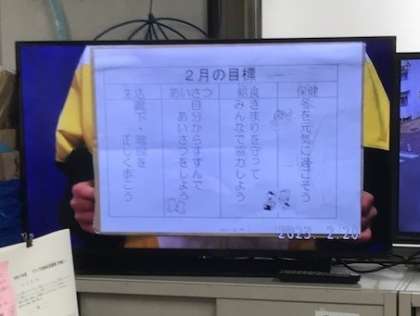 ２月の目標
保健
冬を元気に過ごそう
給食
きまりを守って
みんなで協力しよう
あいさつ
自分からすすんで
あいさつをしよう
生活
廊下・階段を
正しく歩こう
2023 2.20